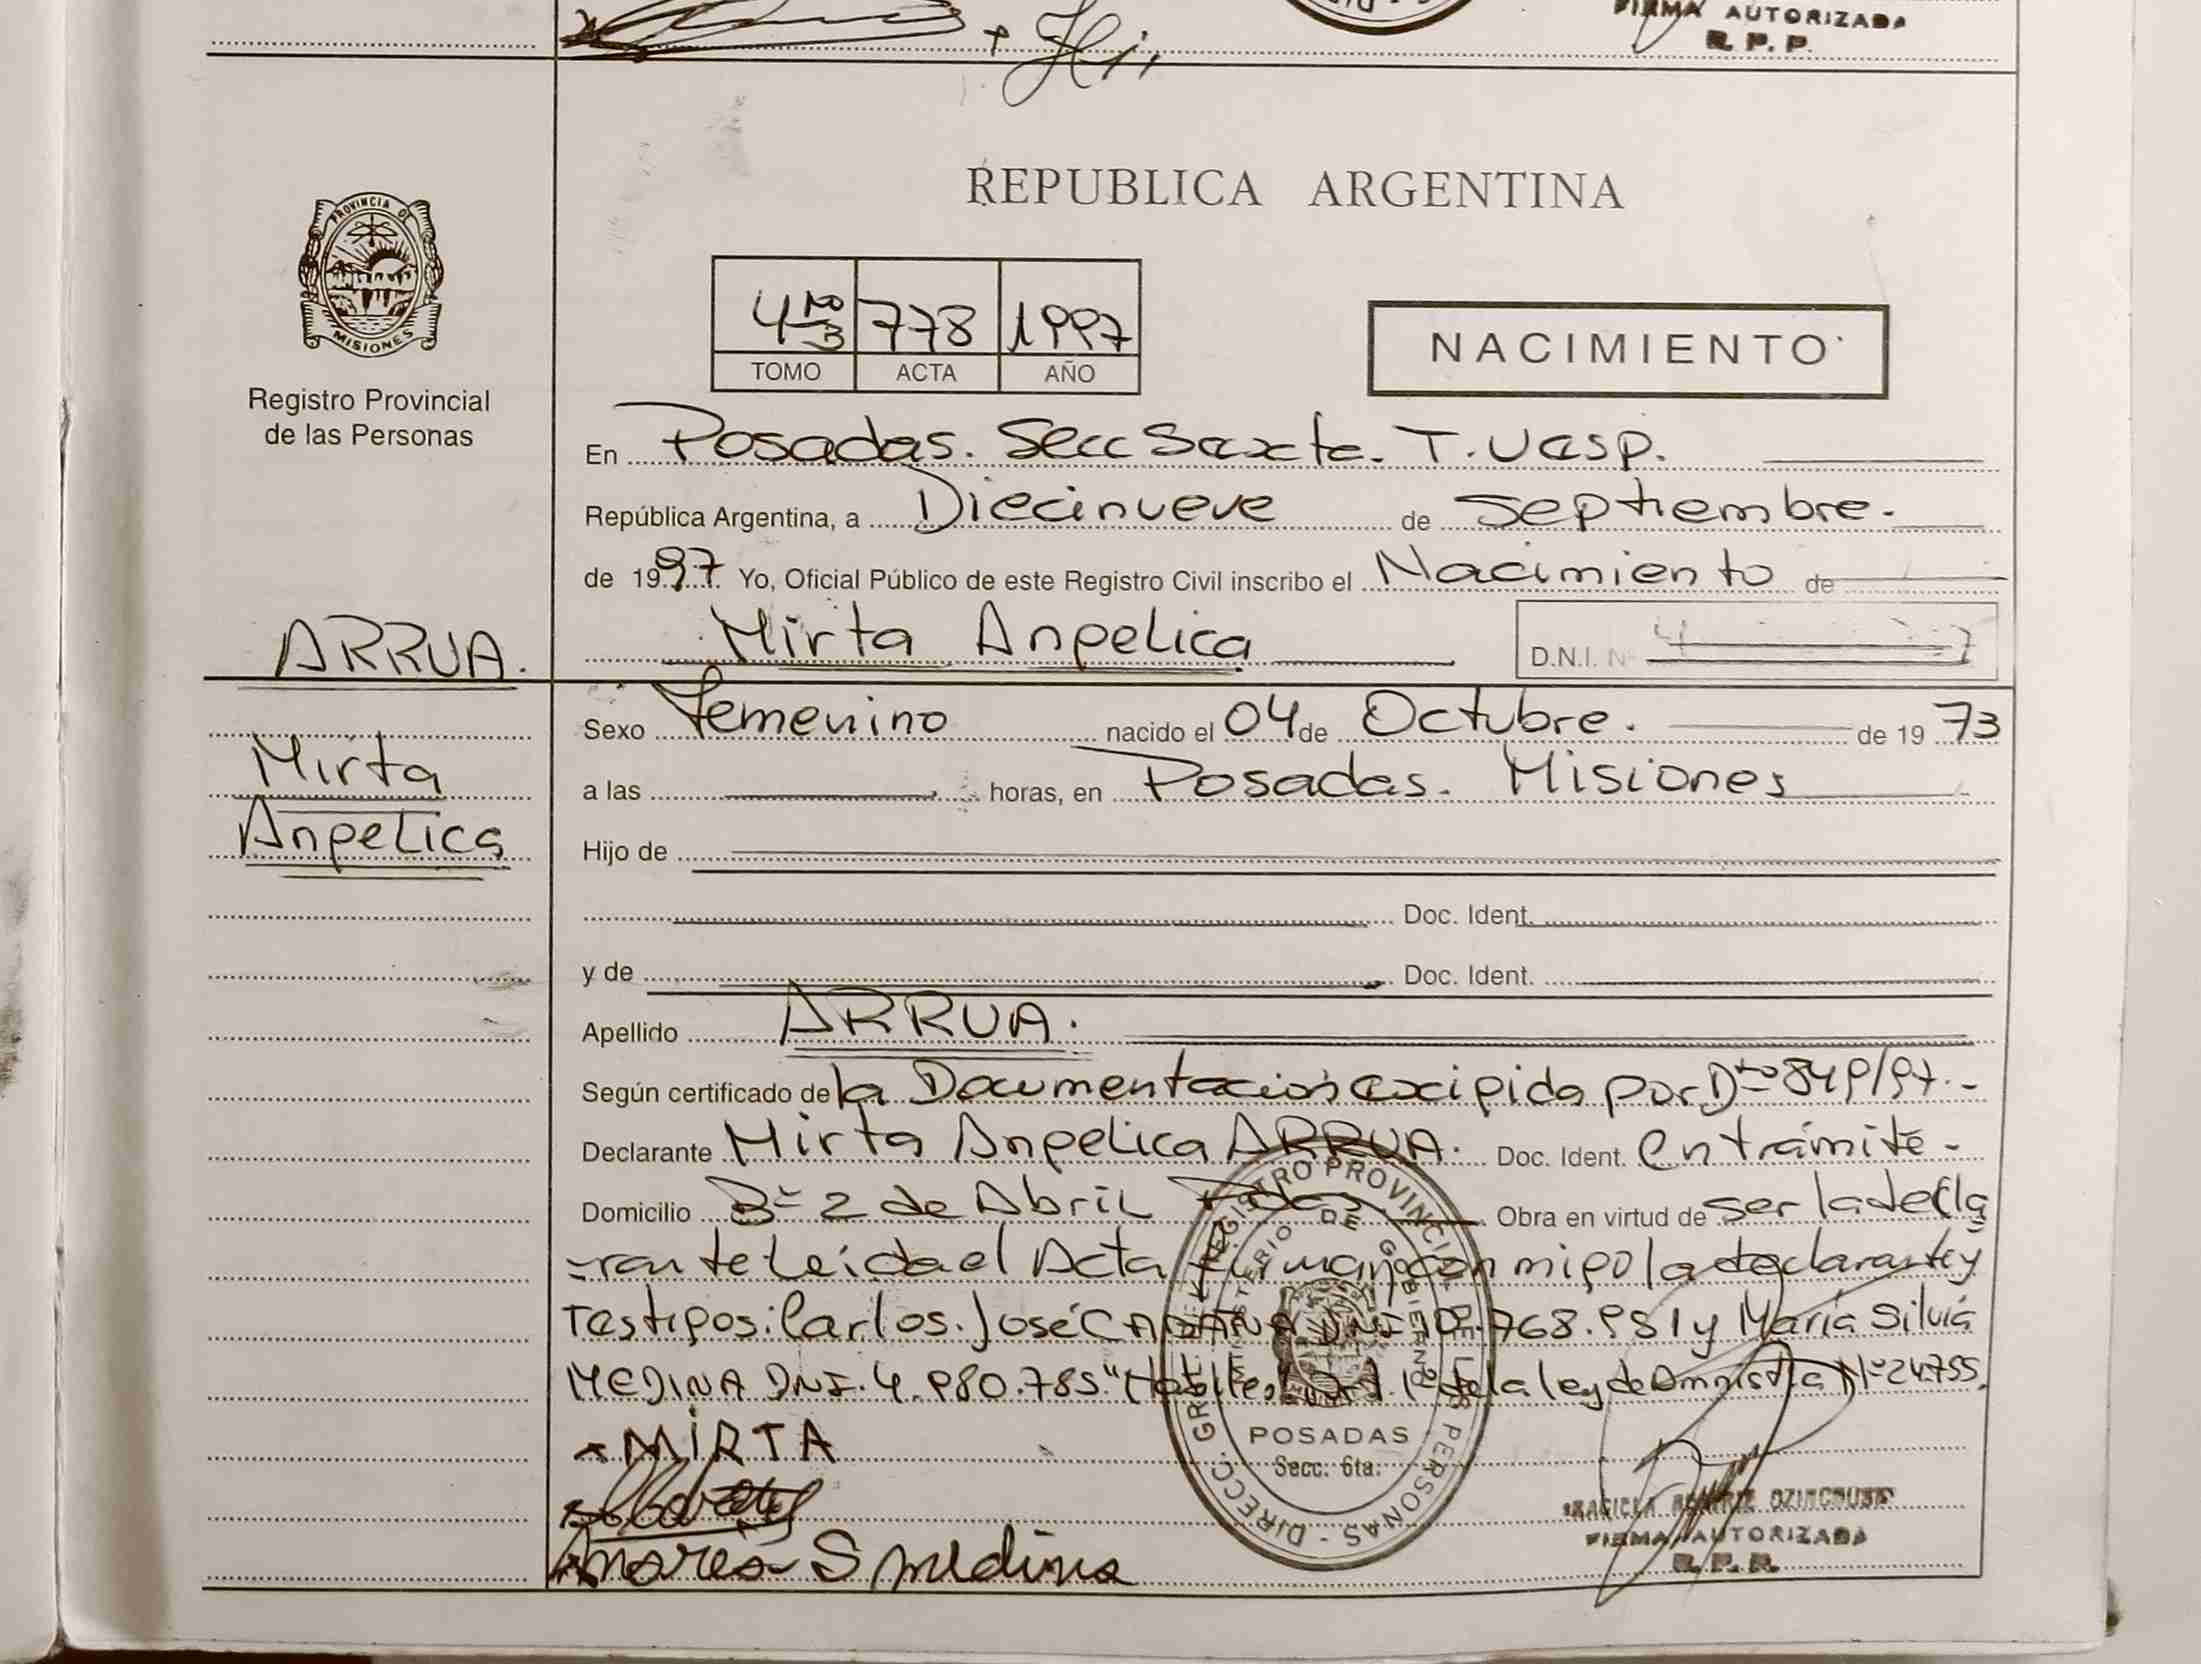 FIRMA AUTORIZADA
R. P. P.
PROVINCIA DE
MISIONES
Registro Provincial
de las Personas
REPUBLICA ARGENTINA
4to B 778 1997
TOMO ACTA AÑO
NACIMIENTO
En Posadas. Secc Sexta. T. Uasp.
República Argentina, a Diecinueve de Septiembre.
de 1997. Yo, Oficial Público de este Registro Civil inscribo el Nacimiento de
Mirta Angelica D.N.I. Nº
ARRUA.
Mirta
Angelica
Sexo Femenino nacido el 04 de Octubre. de 1973
a las horas, en Posadas. Misiones
Hijo de
Doc. Ident.
y de Doc. Ident.
Apellido ARRUA.
Según certificado de la Documentación exigida por Dto 849/97.-
Declarante Mirta Angelica ARRUA. Doc. Ident. en trámite-
Domicilio Bº 2 de Abril Pdas Obra en virtud de ser la decla
rante Leida el Acta firman conmigo la declarante y
Testigos: Carlos José DNI 768.951 y María Silvia
MEDINA DNI. 4.980.785 "Habiles" Art. 1º de la ley de Amnistia Nº 24.755.
MIRTA
S Medina
DIRECC. GRAL. REGISTRO PROVINCIAL DE LAS PERSONAS
MINISTERIO DE GOBIERNO
POSADAS
Secc. 6ta.
FIRMA AUTORIZADA
R. P. P.